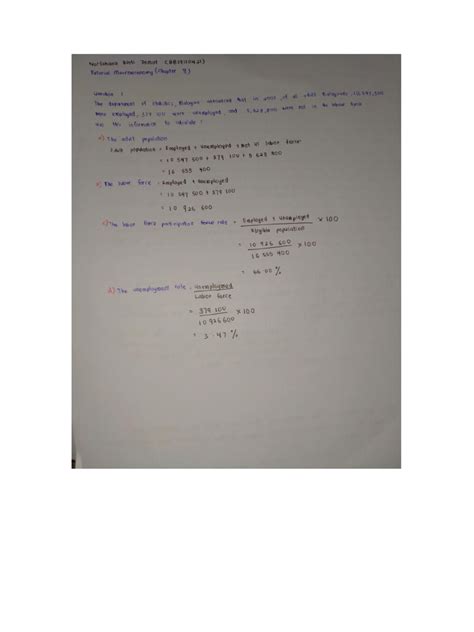 Tutorial Macroeconomy (Chapter 9)
Question 1
The Department of Statistic, Malaysia announced that in , of all adult Malaysians, 10,547,500
were employed, 379 100 were unemployed and were not in the labour force
use this information to calculate :
a) The adult population
Adult population = Employed + Unemployed + Not in labor force
= 10 547 500 + 379 100 + 5 628 800
= 16 555 400
b) The labor force = Employed + Unemployed
= 10 547 500 + 379 100
= 10 926 600
c) The labor force participation rate = Employed + Unemployed × 100
Eligible population
= 10 926 600 × 100
16 555 400
= 66.00 %
d) The unemployment rate = Unemployed × 100
Labor force
= 379 100 × 100
10 926 600
= 3.47 %